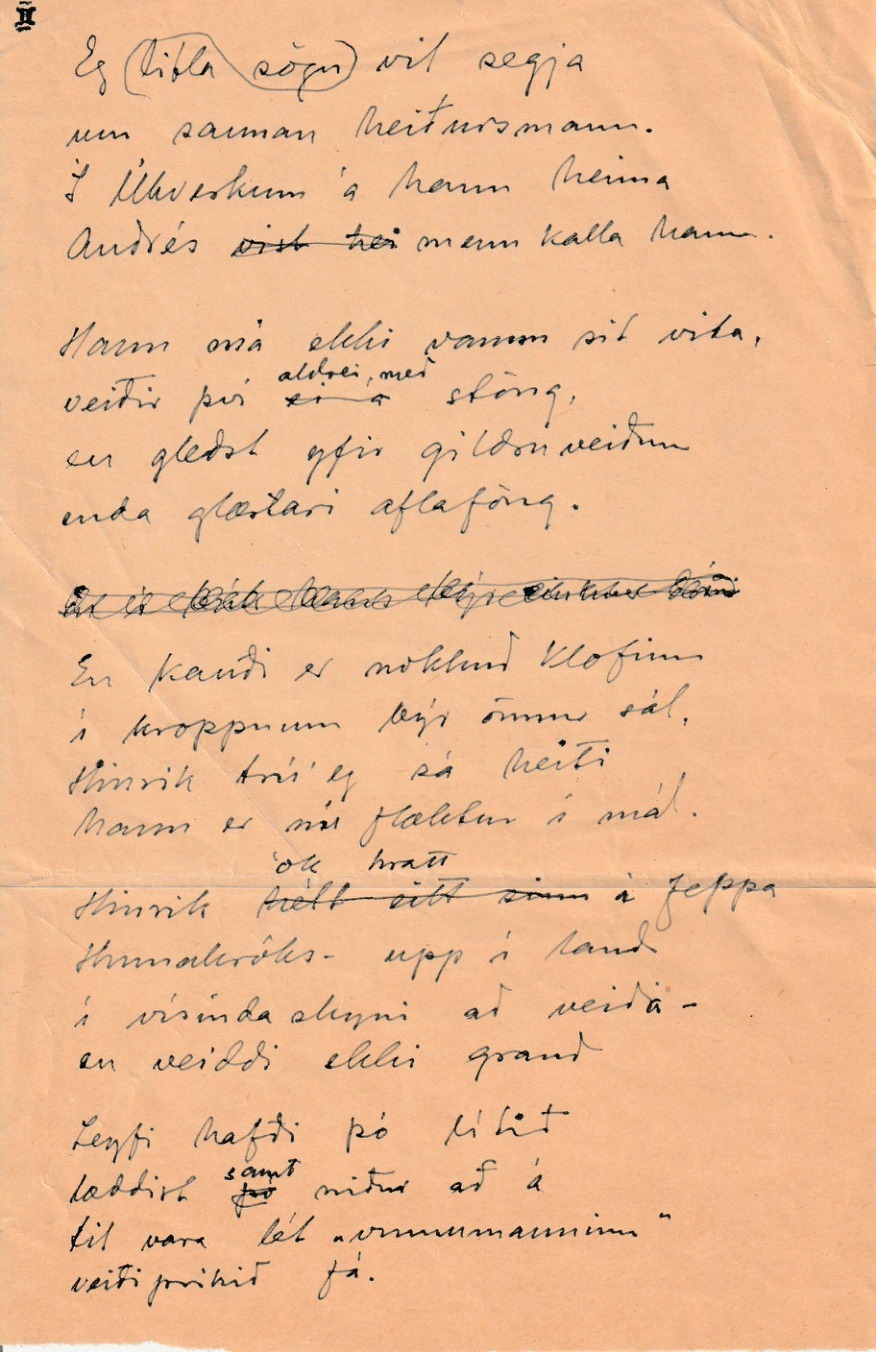 II
Eg litla sögu vil segja
um sannan heiðursmann.
Í Útverkum á hann heima
Andrés vist hei menn kalla hann.
Hann má ekki vamm sit vita,
aldrei, með
veiðir því ei á stöng,
en gleðst yfir gildruveiðum
enda glæstari aflaföng.
En kauði er nokkuð klofinn
í kroppnum býr önnur sál,
Hinrik trú eg sá heiti
hann er nú flæktur í mál.
ók hratt
Hinrik hélt sitt sinn á Jeppa
Hrunakróks- upp í land
í vísinda skyni að veiða -
en veiddi ekki grand
Leyfi hafði þó lítið
samt
læddist þó niður að á
til vara lét „vinnumanninn"
veiðiprikið fá.